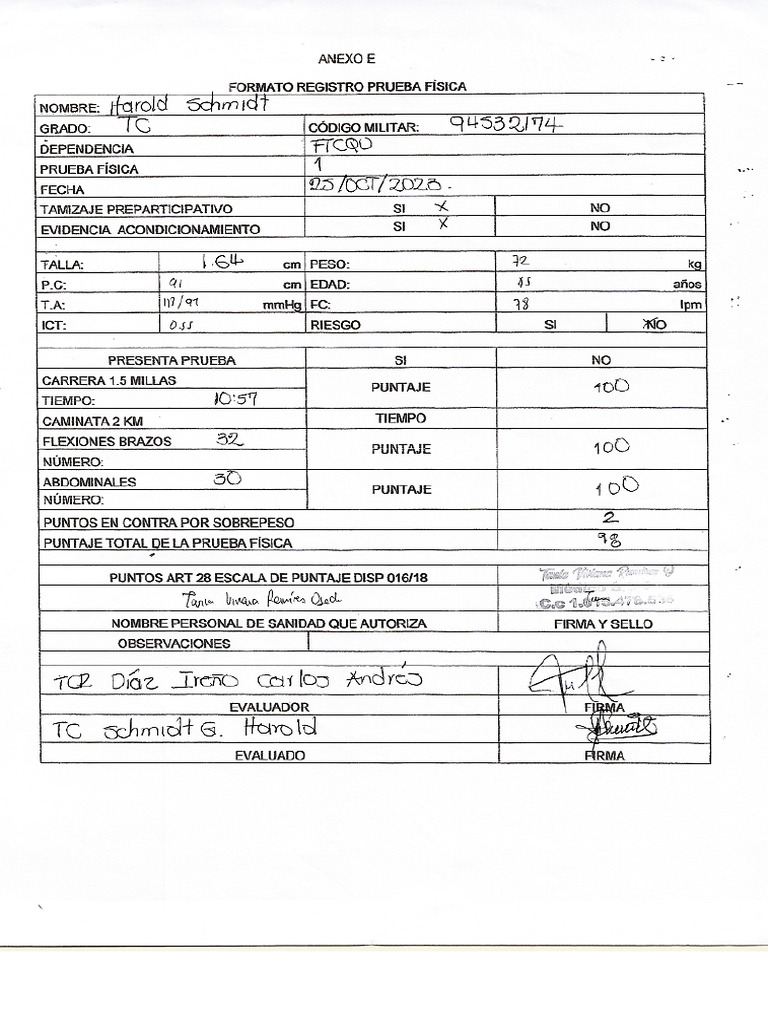 ANEXO E
FORMATO REGISTRO PRUEBA FÍSICA
NOMBRE: Harold Schmidt
GRADO: TC CÓDIGO MILITAR: 94532174
DEPENDENCIA FTCQU
PRUEBA FÍSICA 1
FECHA 25/OCT/2023.
TAMIZAJE PREPARTICIPATIVO SI X NO
EVIDENCIA ACONDICIONAMIENTO SI X NO
TALLA: 1.64 cm PESO: 72 kg
P.C: 91 cm EDAD: años
T.A: mmHg FC: 78 lpm
ICT: 0.55 RIESGO SI NO
PRESENTA PRUEBA SI NO
CARRERA 1.5 MILLAS PUNTAJE 100
TIEMPO: 10:57
CAMINATA 2 KM TIEMPO
FLEXIONES BRAZOS 32 PUNTAJE 100
NÚMERO:
ABDOMINALES 30 PUNTAJE 100
NÚMERO:
PUNTOS EN CONTRA POR SOBREPESO 2
PUNTAJE TOTAL DE LA PRUEBA FÍSICA 98
PUNTOS ART 28 ESCALA DE PUNTAJE DISP 016/18
Tania Viviana Ramirez
NOMBRE PERSONAL DE SANIDAD QUE AUTORIZA FIRMA Y SELLO
OBSERVACIONES
Díaz Ireño Carlos Andrés
EVALUADOR FIRMA
TC Schmidt G. Harold
EVALUADO FIRMA